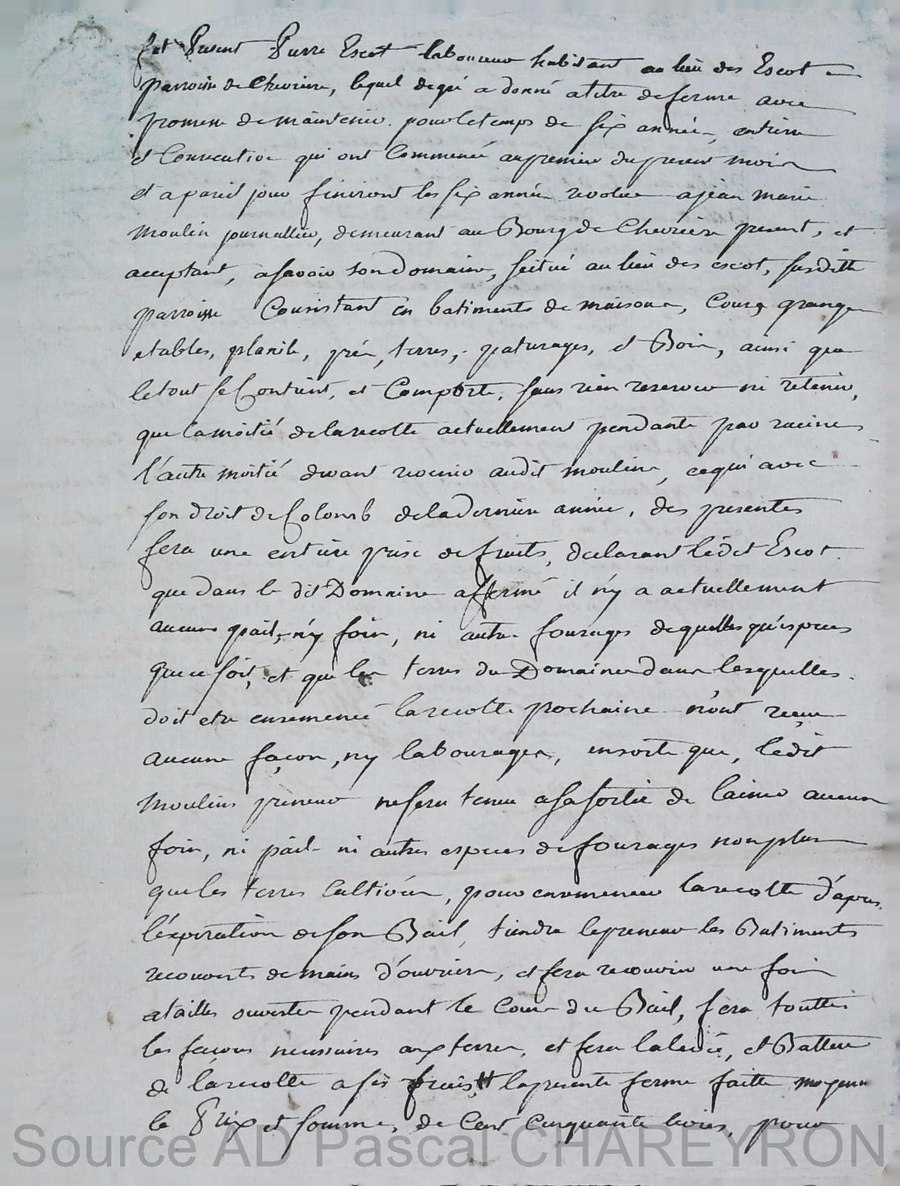 fut Present Pierre Escot laboureur habitant au lieu des Escot
parroisse de Chevriere, lequel de gré a donné a titre de ferme avec
promesse de maintenir pour le temps de six année entiere
et Consecutive qui ont Commencé au premier du present mois
et a pareil jour finiront les six année revolue a jean marie
Moulin journallier, demeurant au Bourg de Chevriere present, et
acceptant, a savoir son Domaine, scitué au lieu des escot, susditte
parroisse Consistant en batiments de maison, Cour, grange
etables, prés, terres, paturages, et Bois, ainsi que
le tout se Contient, et Comporte, sans rien reserver ni retenir,
que la moitié de la recolte actuellement pendante par racines
l'autre moitié devant revenir audit moulin, ce qui avec
son droit de Colomb de la derniere année, des presentes
fera une entiere prise de fruits, declarant ledit Escot
que dans le dit Domaine affermé il n'y a actuellement
aucune pail, n'y foin, ni autre fourages de quelles qu'especes
que ce soit, et que les terres du Domaine dans lesquelles
doit etre ensemencé la recolte prochaine n'ont reçue
aucune façon, ny labourages, ensorte que, ledit
Moulin preneur ne sera tenu a sa sortie de laisser aucun
foin, ni pail ni autres especes de fourages non plus
que les terres Cultivée, pour ensemencer la recolte d'apres
l'expiration de son Bail, tiendra le preneur les Batiments
recouverts de mains d'ouvrier, et fera recouvrir une fois
a tailles ouverte pendant le Cour du Bail, fera touttes
les façons necessaires aux terres, et fera la levée, et Batture
de la recolte a ses frais, la presente ferme faitte moyenn
le Prix et somme, de Cent Cinquante livres, pour
Source AD Pascal CHAREYRON